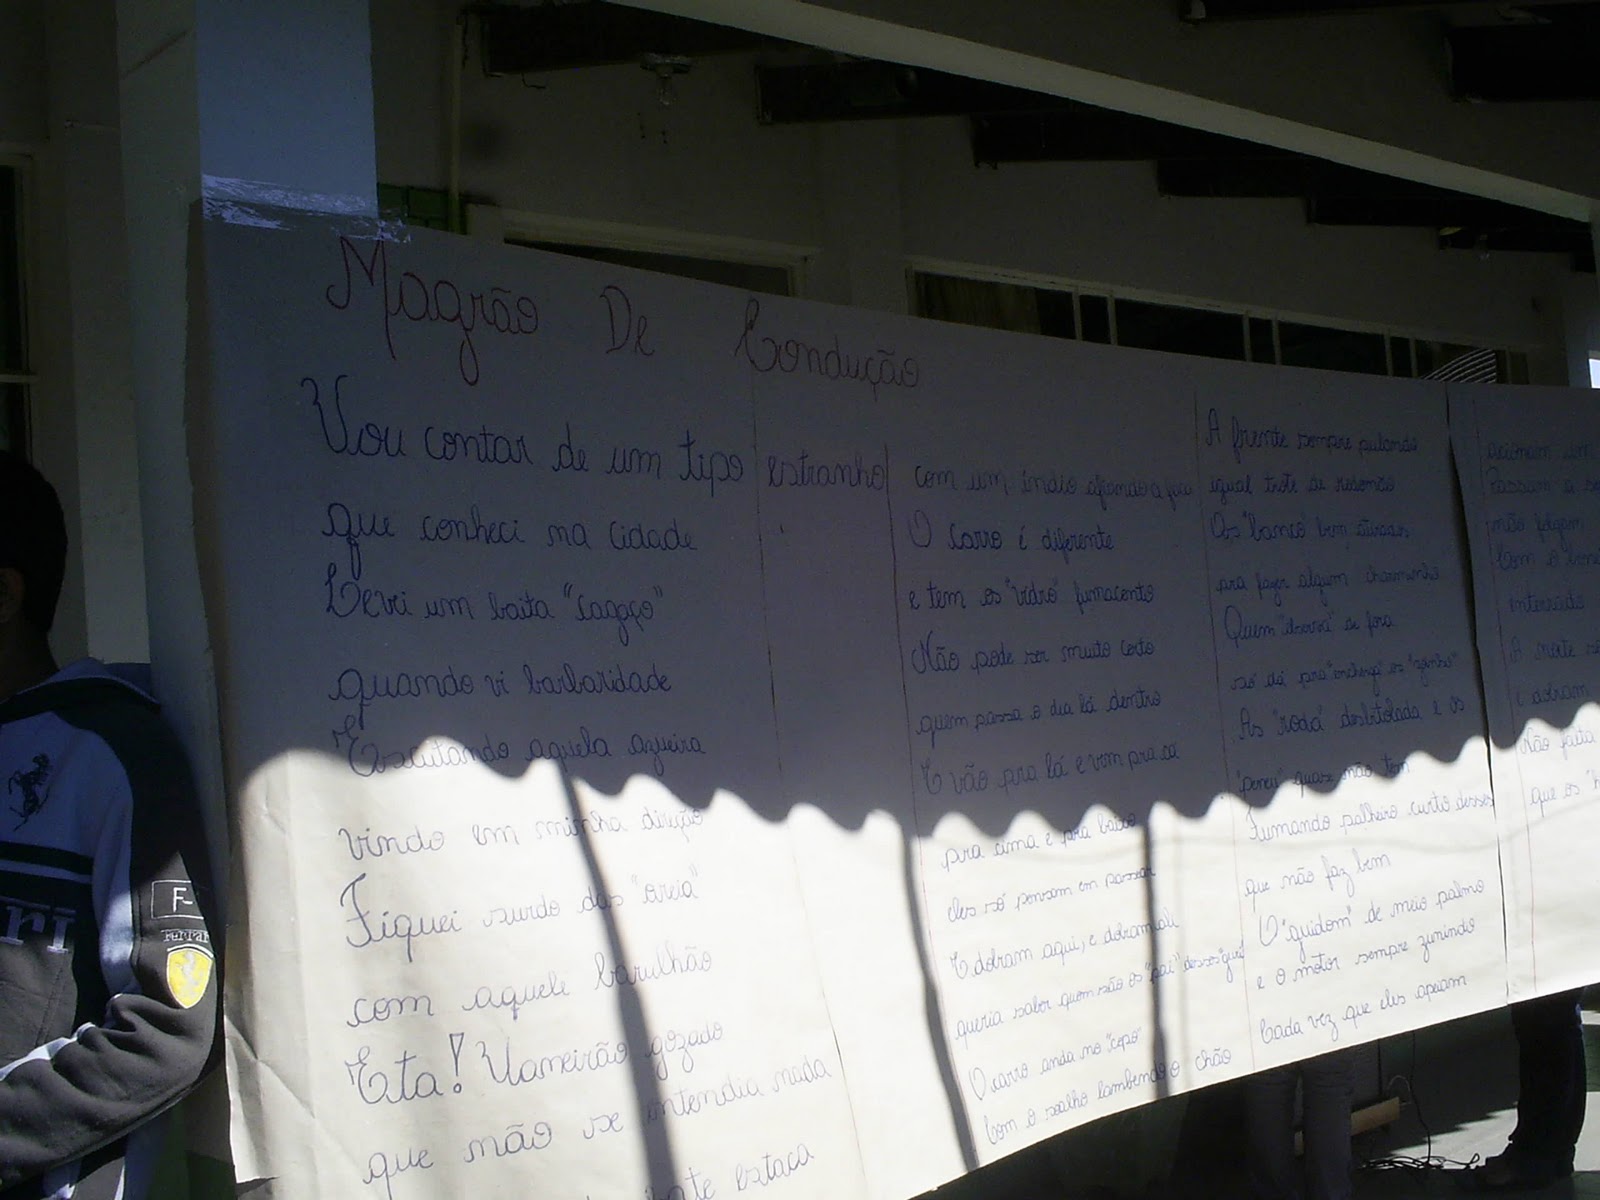 Magrão De Condução
Vou contar de um tipo estranho
que conheci na cidade
Levei um baita "cagaço"
quando vi barbaridade
Escutando aquela azueira
vindo em minha direção
Fiquei surdo das "oreia"
com aquele barulhão
Eta! Vaneirão gozado
que não se entendia nada
bate estaca
com um índio a fora
O carro é diferente
e tem os "vidro" fumacento
Não pode ser muito certo
quem passa o dia lá dentro
E vão pra lá e vem pra cá
pra cima e pra baixo
eles só pensam em passear
E dobram aqui, e dobram ali
queria saber quem são os "pai" desses "guri"
O carro anda no "cepo"
Com o soalho lambendo o chão
A frente sempre pulando
igual trote de redomão
Os "banco" bem
pra fazer algum charminho
Quem "oserva" de fora
só dá pra os
As "roda" desbitolada e os
"peneu" quase não tem
Fumando palheiro curto desses
que não faz bem
O "guidom" de meio palmo
e o motor sempre zunindo
Cada vez que eles apeiam
acionam um
Passam a
não folgam
Com o
A noite
e dobram
Não falta
que os
F-
Ferrari